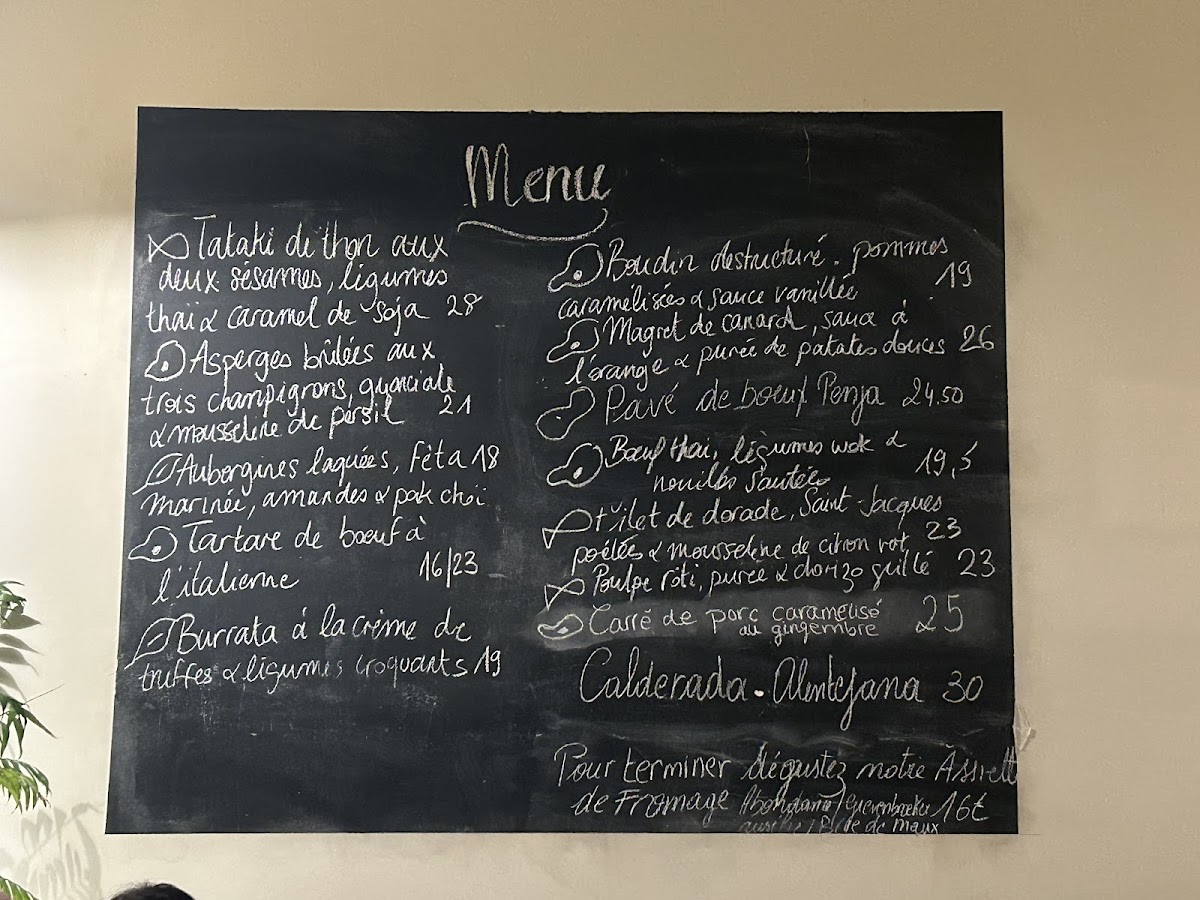 Menu
Tataki de thon aux
deux sésames, légumes
thaï & caramel de soja 28
Asperges brûlées aux
trois champignons, guanciale
& mousseline de persil 21
Aubergines laquées, Féta 18
marinée, amandes & pak choï
Tartare de boeuf à
l'italienne 16/23
Burrata à la crème de
truffes & légumes croquants 19
Boudin destructuré. pommes
caramélisées & sauce vanillée 19
Magret de canard, sauce à
l'orange & purée de patates douces 26
Pavé de boeuf Penja 24.50
Boeuf thaï, légumes wok &
nouilles sautées 19,5
Filet de dorade, Saint-Jacques
poêlées & mousseline de citron vert 23
Poulpe rôti, purée & chorizo grillé 23
Carré de porc caramelisé
au gingembre 25
Calderada. Alentejana 30
Pour terminer dégustez notre Assiett
de Fromage 16€
de maux